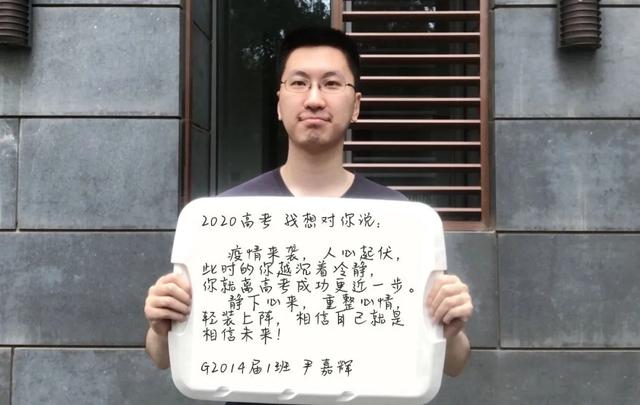 2020高考 我想对你说:
疫情来袭，人心起伏，
此时的你越沉着冷静，
你就离高考成功更近一步。
静下心来，重整心情，
轻装上阵，相信自己就是
相信未来!
G2014届1班 尹嘉辉